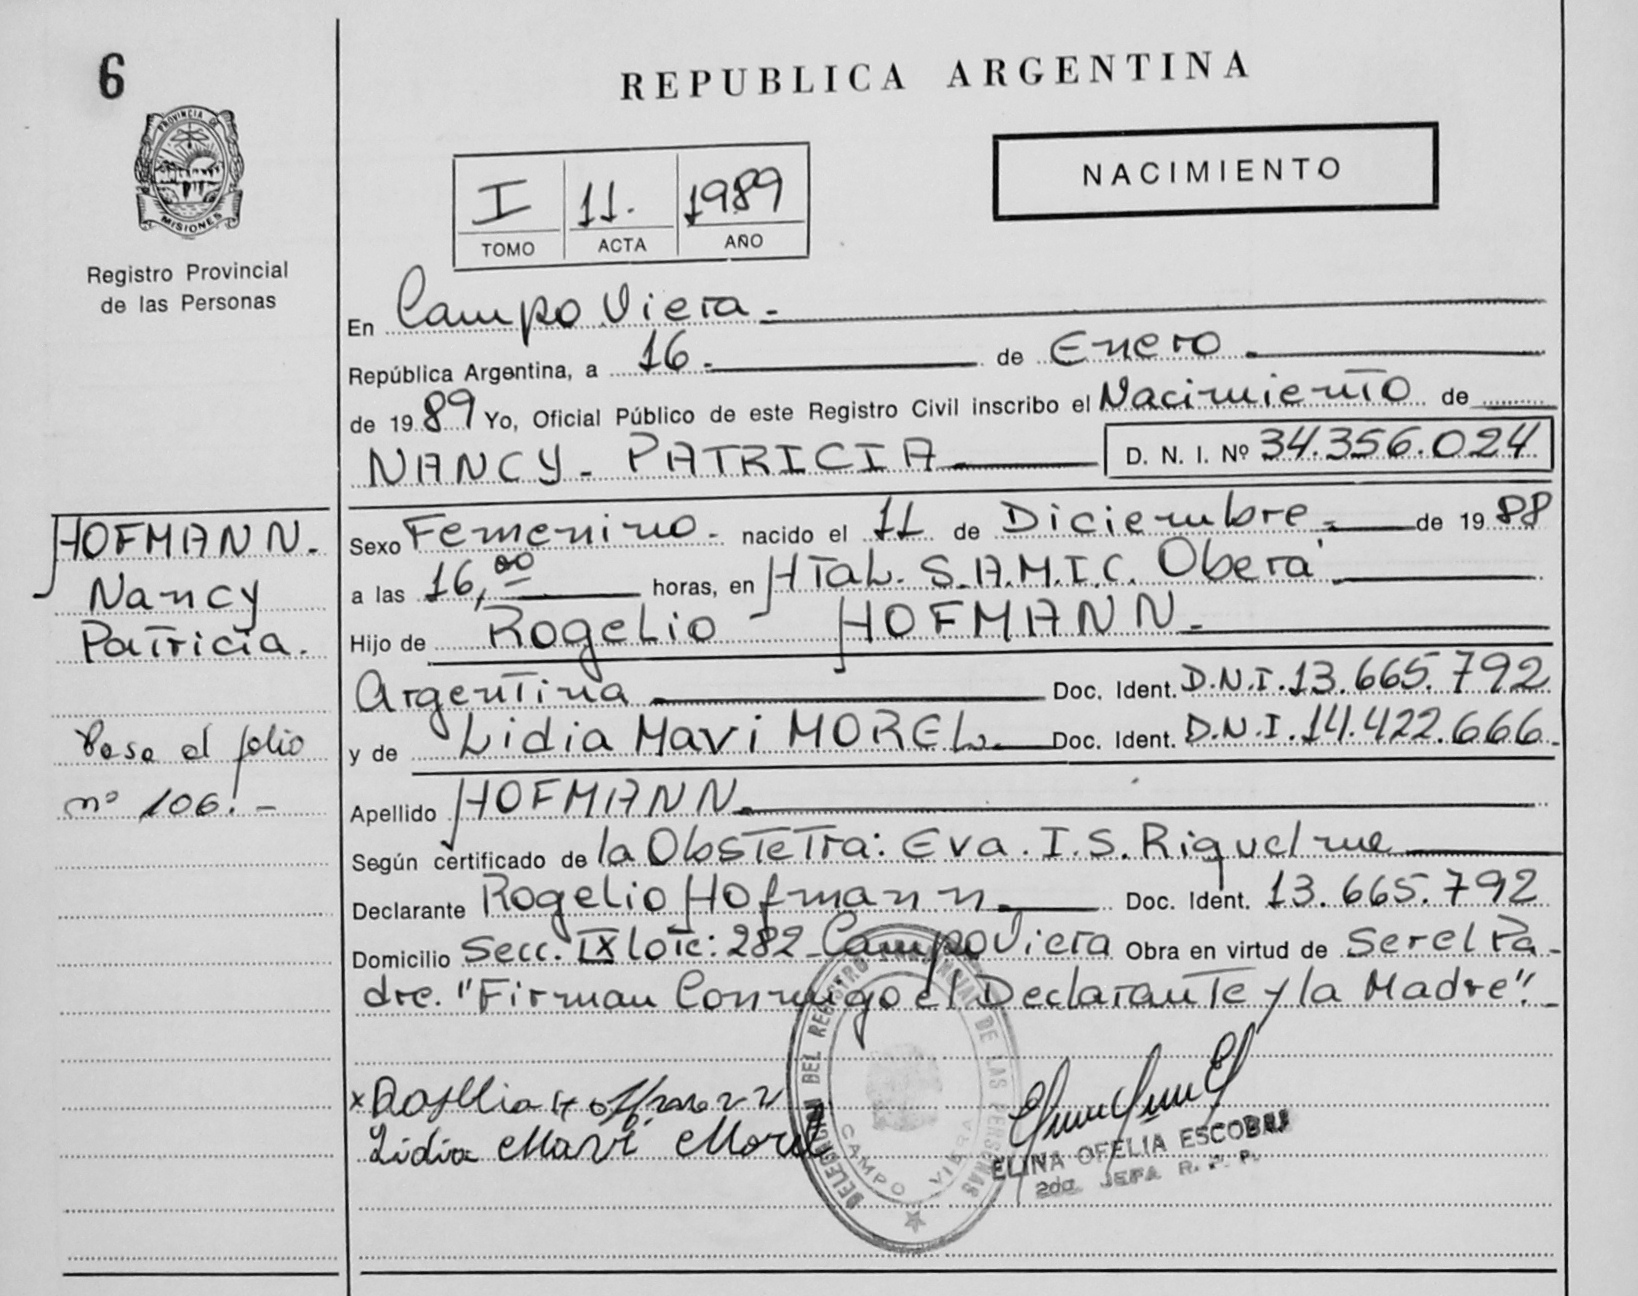 6
REPUBLICA ARGENTINA
PROVINCIA DE
MISIONES
Registro Provincial
de las Personas
I 11. 1989
TOMO ACTA AÑO
NACIMIENTO
En Campo Viera.-
República Argentina, a 16.- de Enero.-
de 1989 Yo, Oficial Público de este Registro Civil inscribo el Nacimiento de
NANCY - PATRICIA D. N. I. Nº 34.356.024
HOFMANN.
Nancy
Patricia.
Pase al folio
nº 106.-
Sexo Femenino.- nacido el 11 de Diciembre.- de 1988
a las 16,00 horas, en HTaL. S.A.M.I.C. Oberá
Hijo de Rogelio HOFMANN.
Argentina Doc. Ident. D.N.I.13.665.792
y de Lidia Mavi MOREL. Doc. Ident. D.N.I.14.422.666.
Apellido HOFMANN.
Según certificado de la Obstetra: Eva. I.S. Riquelme
Declarante Rogelio Hofmann. Doc. Ident. 13.665.792
Domicilio Secc. IX lote: 282 - Campo Viera Obra en virtud de Ser el Pa-
dre. "Firman Conmigo el Declarante y la Madre".-
x Rogelio Hofmann
Lidia Mavi Morel
DELEGACION DEL REGISTRO PROVINCIAL DE LAS PERSONAS
CAMPO VIERA
ELINA OFELIA ESCOBAR
2da. JEFA R. P. P.